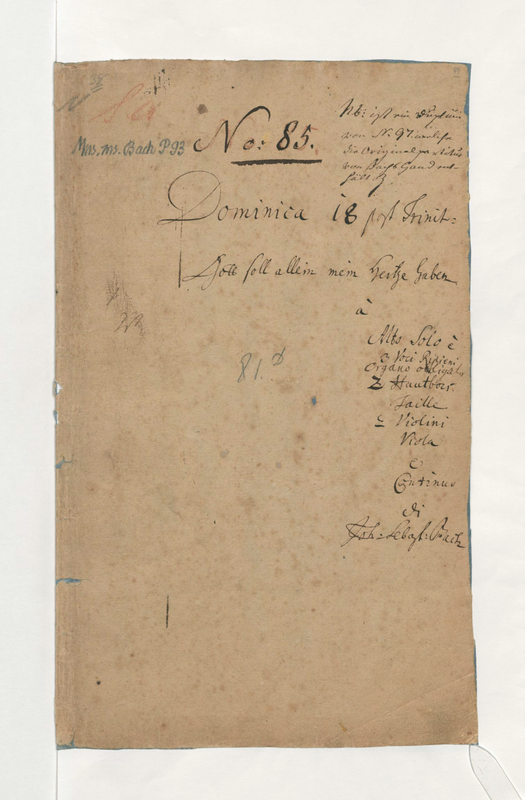 Mus. ms. Bach P 93
No: 85.
Nb: ist ein
von N. 97 welche
die Original
von Bachs Hand
Dominica 18 post Trinit:
Gott soll allein mein Hertze haben
à
Alto Solo è
3 Voci Ripieni
Organo obligato
2 Hautbois.
Taille
2 Violini
Viola
è
Continuo
di
Joh: Sebast: Bach
81.